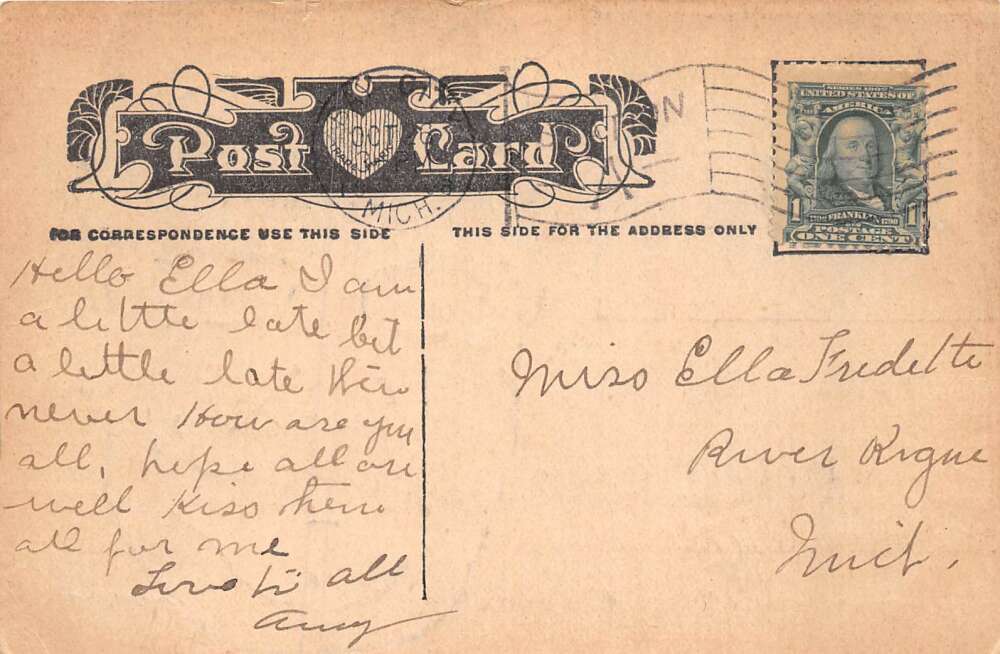 Post Card
OCT
MICH.
SERIES 1902
UNITED STATES OF
AMERICA
1 FRANKLIN 1
POSTAGE
ONE CENT
FOR CORRESPONDENCE USE THIS SIDE
THIS SIDE FOR THE ADDRESS ONLY
Hello Ella I am
a little late bit
a little late then
never How are you
all, hope all are
well Kiss them
all for me
Love to all
Amy
Miss Ella Fredette
River Rogue
Mich.